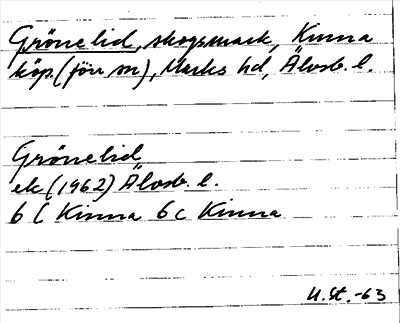 Grönelid, skogsmark, Kinna
köp. (förr sn), Marks hd, Älvsb. l.
Grönelid
ek (1962) Älvsb. l.
6 C Kinna 6 c Kinna
U.St. -63